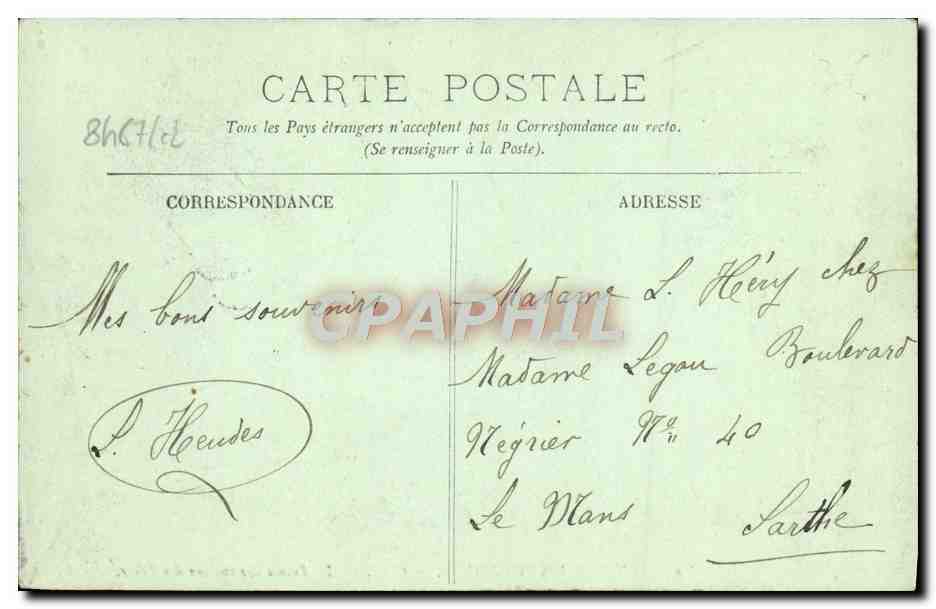 CARTE POSTALE
Tous les Pays étrangers n'acceptent pas la Correspondance au recto.
(Se renseigner à la Poste).
CORRESPONDANCE
Mes bons souvenirs
CPAPHIL
ADRESSE
Madame L. Héry chez
Madame Legou Boulevard
Négrier No 40
Le Mans
Sarthe